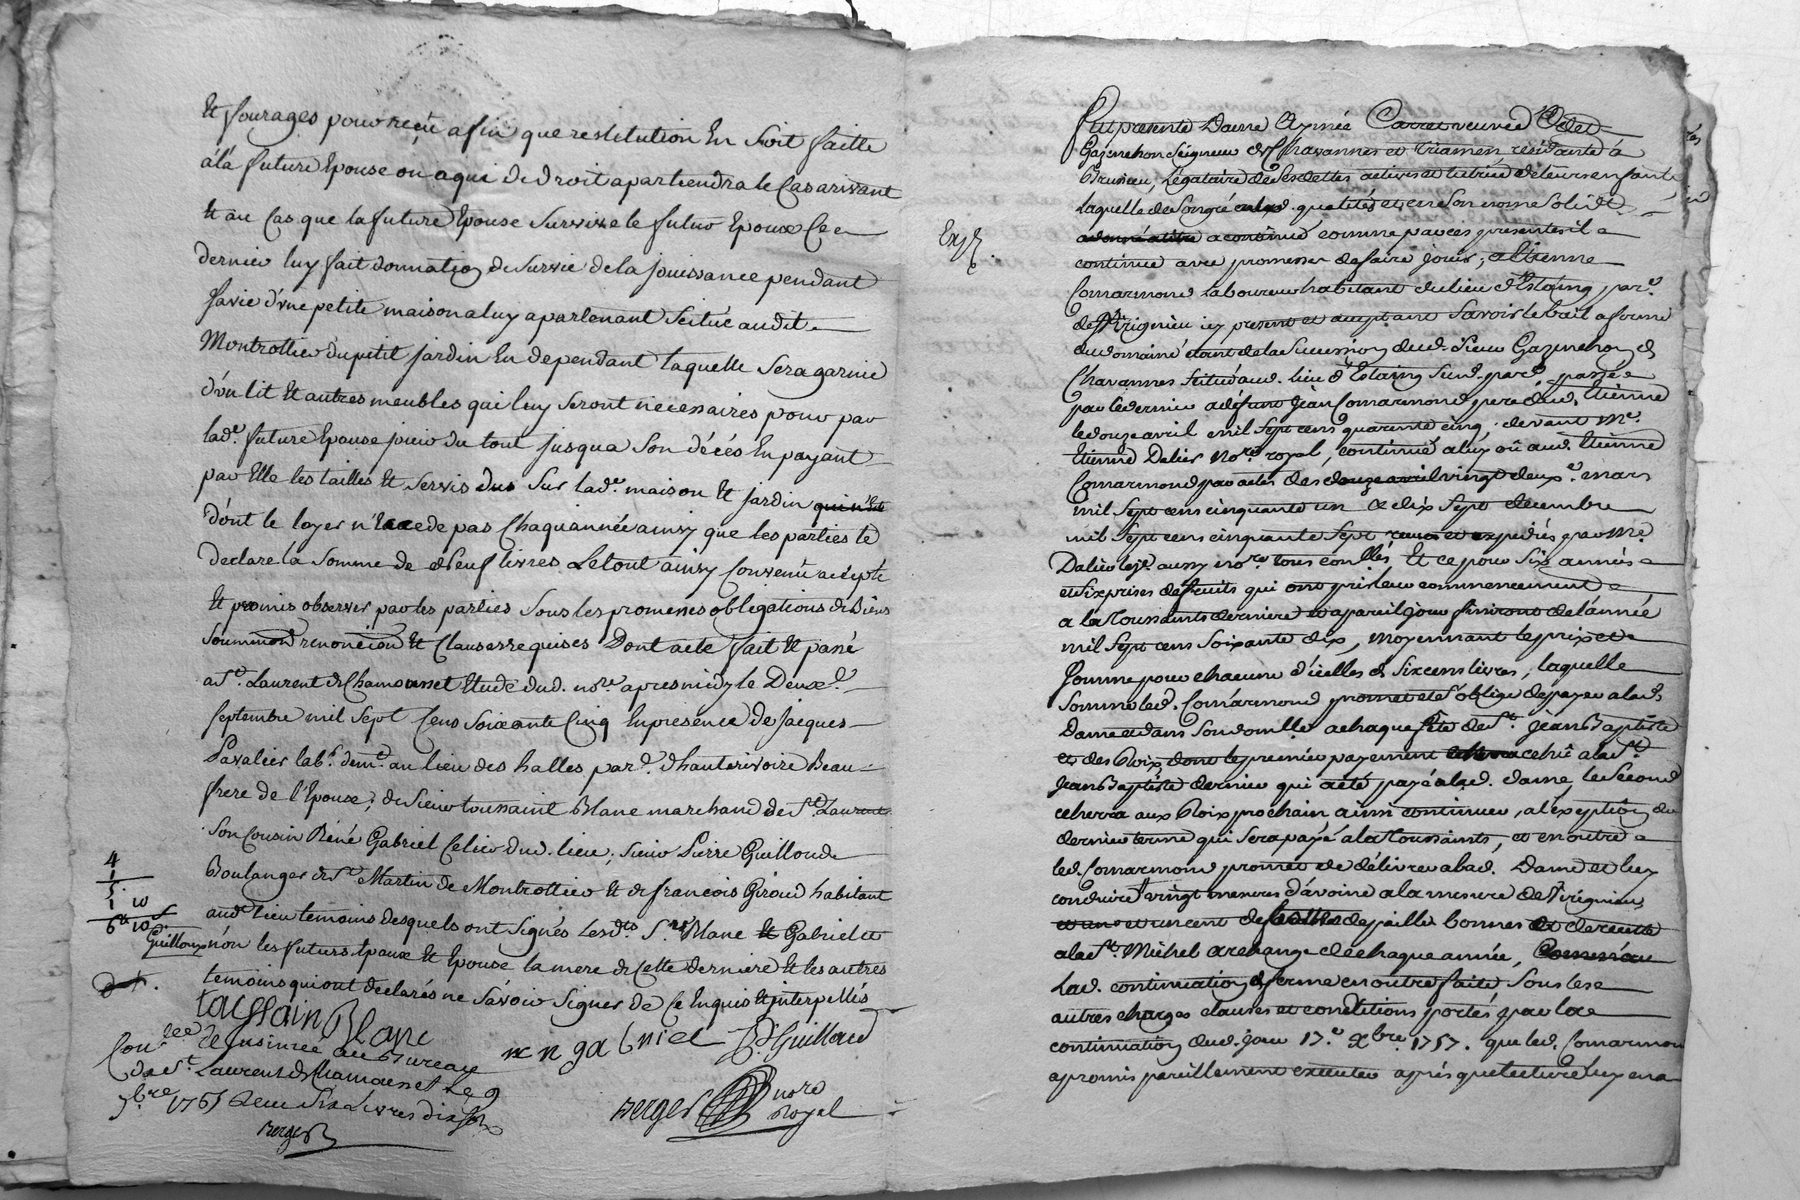 Et fourages pour reçu afin que restitution En Soit faitte
á lá future Epouse ou a qui de droit apartiendra le Cas arivant
Et au Cas que la future Epouse Survive le futur Epoux Ce
dernier luy fait donnation de Survie de la jouissance pendant
Savie d'vne petite maison a luy apartenant Scituée audit
Montrottier du petit jardin En dependant laquelle Sera garnie
d'ún lit Et autres meubles qui luy Seront necessaires pour par
lade. future Epouse jouir du tout jusqua Son décés En payant
par Elle les tailles Et Servis dus Sur lade. maison Et jardin qui n'est
dónt le loyer n'Excede pas Chaquannée ainsy que les parties lé
declare la Somme de Neuf livres Le tout ainsy Convenu accepté
Et promis observer par les parties Sous les promesses obligations de Biens
Soummons renonciaon Et Clauses requises Dont acte fait Et passé
a St. Laurent de Chamousset Etude dud. nore. apres midy le Deuxe.
Septembre mil Sept Cens Soixante Cinq En presence de Jacques
Lavalier labr. demt. au lieu des halles pare. d'hauterivoire Beau
frere de l'Epouse; de Sieur toussaint Blanc marchand de St. Laurent
Son Cousin Réné Gabriel Celier dud. lieu; Sieur Pierre Guilloud
Boulanger de St Martin de Montrottier Et de francois Giroud habitant
aud. lieu temoins desquels ont Signés Lesdts Srs. Blanc Et Gabriel Et
Guilloux non les futurs Epoux Et Epouse la mere de Cette derniere Et les autres
temoins qui ont declarés ne Sávoir Signer de Ce Enquis Et interpellés
4
5
1 10
6 10
toussain Blanc
rene gabriel P. Guilloud
Conlee et Insinuée au Bureau
de St. Laurent de Chamousset Le 9
7bre 1765 Recu Six Livres dix Sols
Berger
Berger nore
Royal
Expé.
Fut presente Dame Aymée Carret veuve d'Odet
Gazanchon Seigneur de Chavannes et Viamen residante á
Brussieu, Légataire de Ses dettes actives et tutrice de leurs enfants
laquelle de Son gré esd. qualités et en Son nome Solide
a continué comme par ces presentes il
continue avec promesse de faire jouir, a Etienne
Comarmond Laboureur habitant du lieu d'Estaing pare.
de Virignieu icy present et acceptant Savoir le bail a ferme
du domainé étant de la Succession dud. Sieur Gazanchon de
Chavannes Scitué aud. lieu d'Estaing Sud. pare. passé
par le dernier a défunt Jean Comarmond pere dud. Etienne
le douze avril mil Sept cens quarente cinq, devant Me.
Etienne Dalier Nore. royal, continué a luy oû aud. Etienne
Comarmond par actes des vingt deuxe. mars
mil Sept cens cinquante un et dix Sept decembre
mil Sept cens cinquante Sept recus et expediés par Me.
Dalier aussy nore. tous conllés. Et ce pour Six années
et Six prises de fruits qui ont pris leur commencement
a la Toussaints derniere et a pareil jour finiront de l'année
mil Sept cens Soixante dix, moyennant le prix et
Somme pour chacune d'icelles de Six cens livres, laquelle
Somme led. Comármond promet et S'oblige de payer a lad.
Dame et dans Son domicile a chaque fête de St. Jean Baptiste
et des Roix dont le premier payement echû a la St.
Jean Baptiste dernier qui a été payé a lad. dame, le Second
écherra aux Roix prochain ainsi continuer, a l'éxception du
dernier terme qui Sera payé a la Toussaints, et en outre
led. Comarmond promet de délivrer a lad. Dame et luy
conduire vingt mesures d'ávoine a la mesure de Virignieu
et un cent de paille bonnes et de recette
a la St. Michel archange de chaque année,
Lad. continuation de ferme en outre faité Sous les
autres charges clauses et conditions portés par la
continuation dud. jour 17e. Xbre 1757. que led. Comarmon
a promis pareillement executer après que lecture luy en a